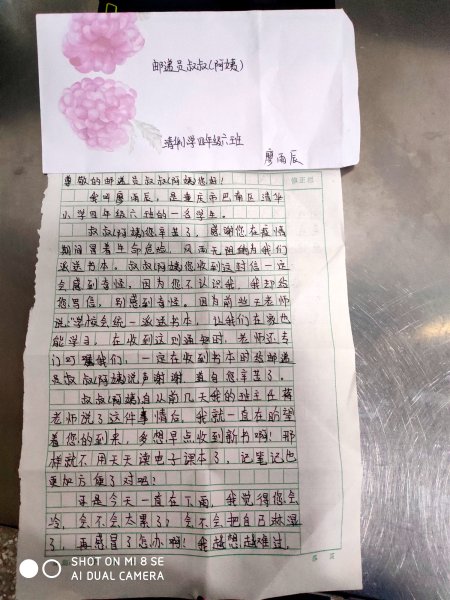 邮递员叔叔(阿姨)
清华小学四年级六班
廖雨辰
尊敬的邮递员叔叔(阿姨)您好!
我叫廖雨辰,是重庆市巴南区清华
小学四年级六班的一名学生。
叔叔(阿姨)您辛苦了,感谢您在疫情
期间冒着生命危险,风雨无阻地为我们
派送书本。叔叔(阿姨)您收到这封信一定
会感到奇怪,因为您不认识我,我却给
您写信,别感到奇怪。因为前些天老师
说:"学校会统一派送书本,让我们在家也
能学习。在收到这则通知时,老师还专
门叮嘱我们,一定在收到书本时给邮递
员叔叔(阿姨)说声谢谢,道自您辛苦了。
叔叔(阿姨)自从前几天我的班主任蒋
老师说了这件事情后,我就一直在盼望
着您的到来,多想早点收到新书啊!那
样就不用天天读电子课本了,记笔记也
更加方便了对吗?
可是今天一直在下雨,我觉得您会
冷,会不会太累了,会不会把自己淋湿
了,再感冒了怎办啊!我越想越难过,
SHOT ON MI 8 SE
AI DUAL CAMERA